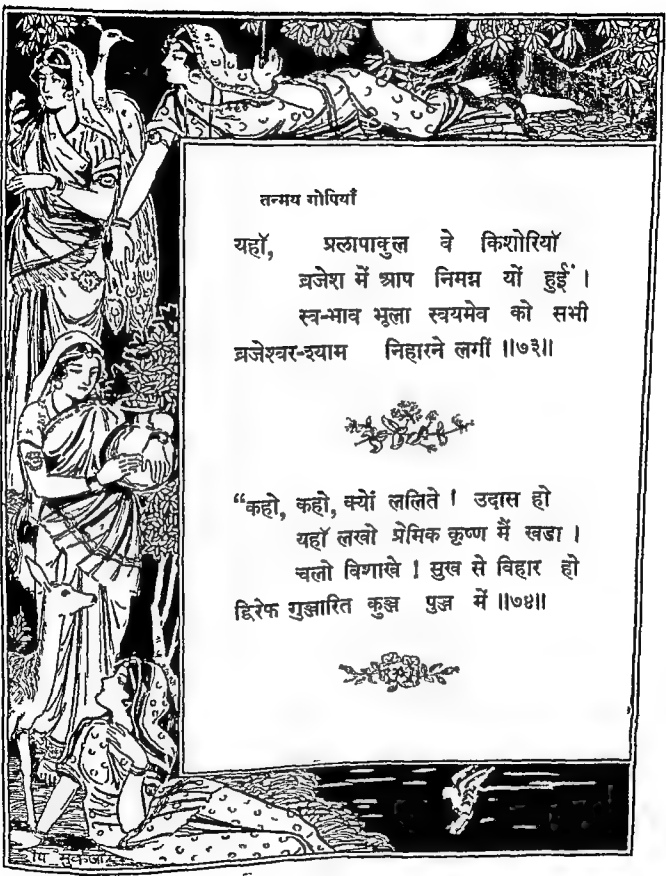 तन्मय गोपियाँ
यहाँ, प्रलापाकुल वे किशोरियाँ
ब्रजेश में आप निमग्न यों हुईं ।
स्व-भाव भूला स्वयमेव को सभी
ब्रजेश्वर-श्याम निहारने लगीं ॥७३॥
“कहो, कहो, क्यों ललिते ! उदास हो
यहाँ लखो प्रेमिक कृष्ण मैं खडा ।
चलो विशाखे ! सुख से विहार हो
द्विरेफ गुञ्जारित कुञ्ज पुञ्ज में ॥७४॥